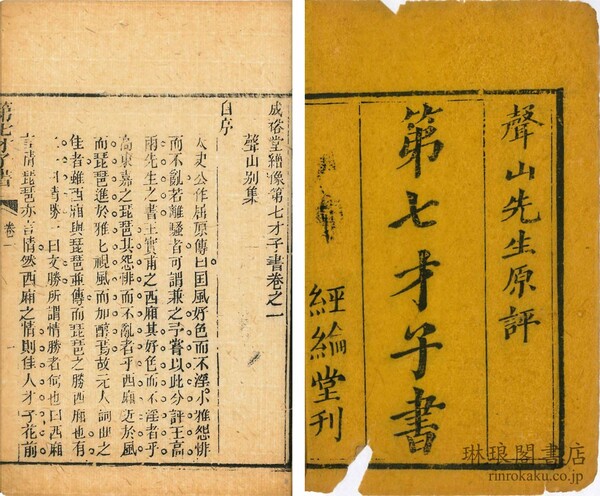 聲山先生原評
第七才子書
經綸堂刊
成裕堂繪像第七才子書卷之一
聲山別集
自序
太史公作屈原傳曰国風好色而不淫小雅怨悱
而不亂若離騷者可謂兼之予嘗以此分評王高
兩先生之書王實甫之西廂其好色而不淫者乎
高東嘉之琵琶其怨悱而不亂者乎西廂近於風
而琵琶進於雅匕視風而加醇焉故元人詞曲之
佳者雖西廂與琵琶並傳而琵琶之勝西廂也有
二一曰情勝一曰文勝所謂情勝者何也曰西廂
言情琵琶亦言情然西廂之情則佳人才子花前
第七才子書
卷一
琳琅閣書店
rinrokaku.co.jp